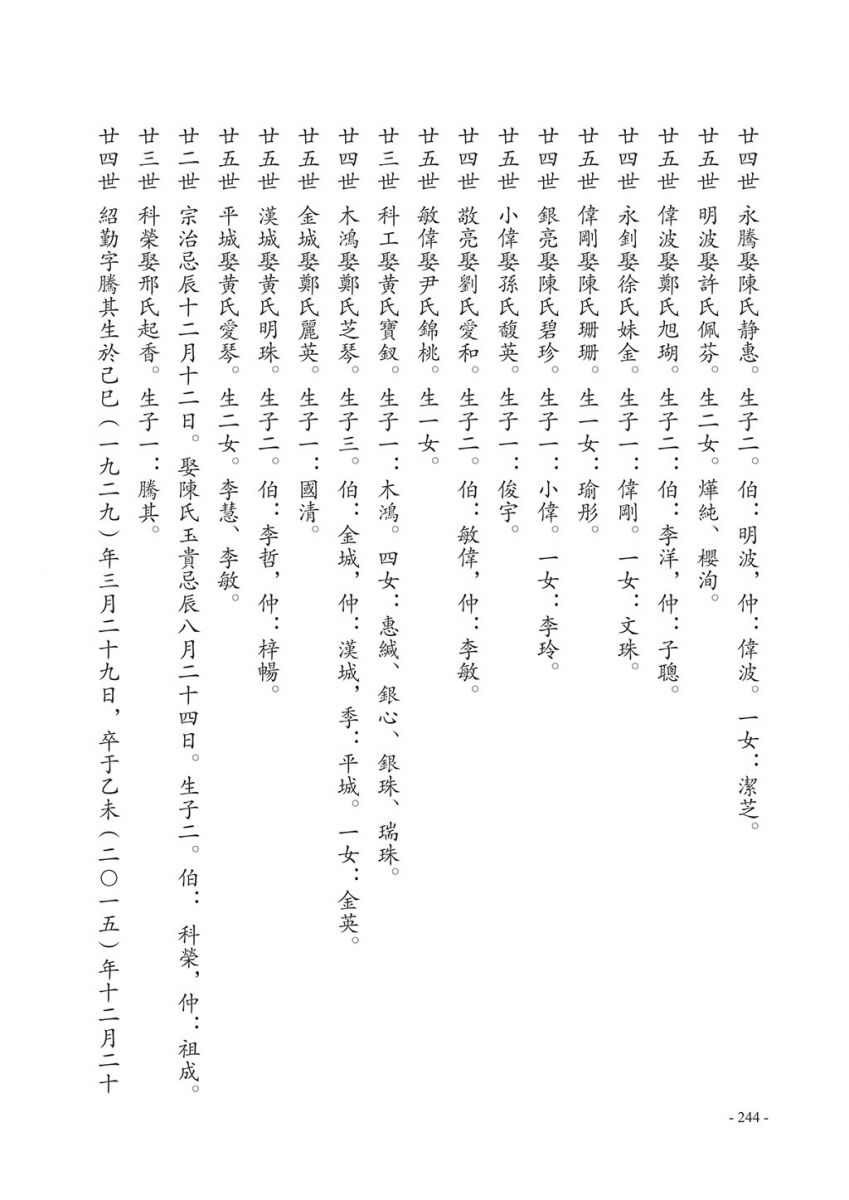 廿四世 永騰娶陳氏静惠。生子二。伯：明波，仲：偉波。一女：潔芝。
廿五世 明波娶許氏佩芬。生二女。燁純、櫻洵。
廿五世 偉波娶鄭氏旭瑚。生子二：伯：李洋，仲：子聰。
廿四世 永釗娶徐氏妹金。生子一：偉剛。一女：文珠。
廿五世 偉剛娶陳氏珊珊。生一女：瑜彤。
廿四世 銀亮娶陳氏碧珍。生子一：小偉。一女：李玲。
廿五世 小偉娶孫氏馥英。生子一：俊宇。
廿四世 敬亮娶劉氏愛和。生子二。伯：敏偉，仲：李敏。
廿五世 敏偉娶尹氏錦桃。生一女。
廿三世 科工娶黃氏寶釵。生子一：木鴻。四女：惠緘、銀心、銀珠、瑞珠。
廿四世 木鴻娶鄭氏芝琴。生子三。伯：金城，仲：漢城，季：平城。一女：金英。
廿五世 金城娶鄭氏麗英。生子一：國清。
廿五世 漢城娶黃氏明珠。生子二：伯：李哲，仲：梓暢。
廿五世 平城娶黃氏愛琴。生二女。李慧、李敏。
廿二世 宗治忌辰十二月十二日。娶陳氏玉貴忌辰八月二十四日。生子二。伯：科榮，仲：祖成。
廿三世 科榮娶邢氏起香。生子一：騰其。
廿四世 紹勤字騰其生於己巳（一九二九）年三月二十九日，卒于乙未（二〇一五）年十二月二十
- 244 -